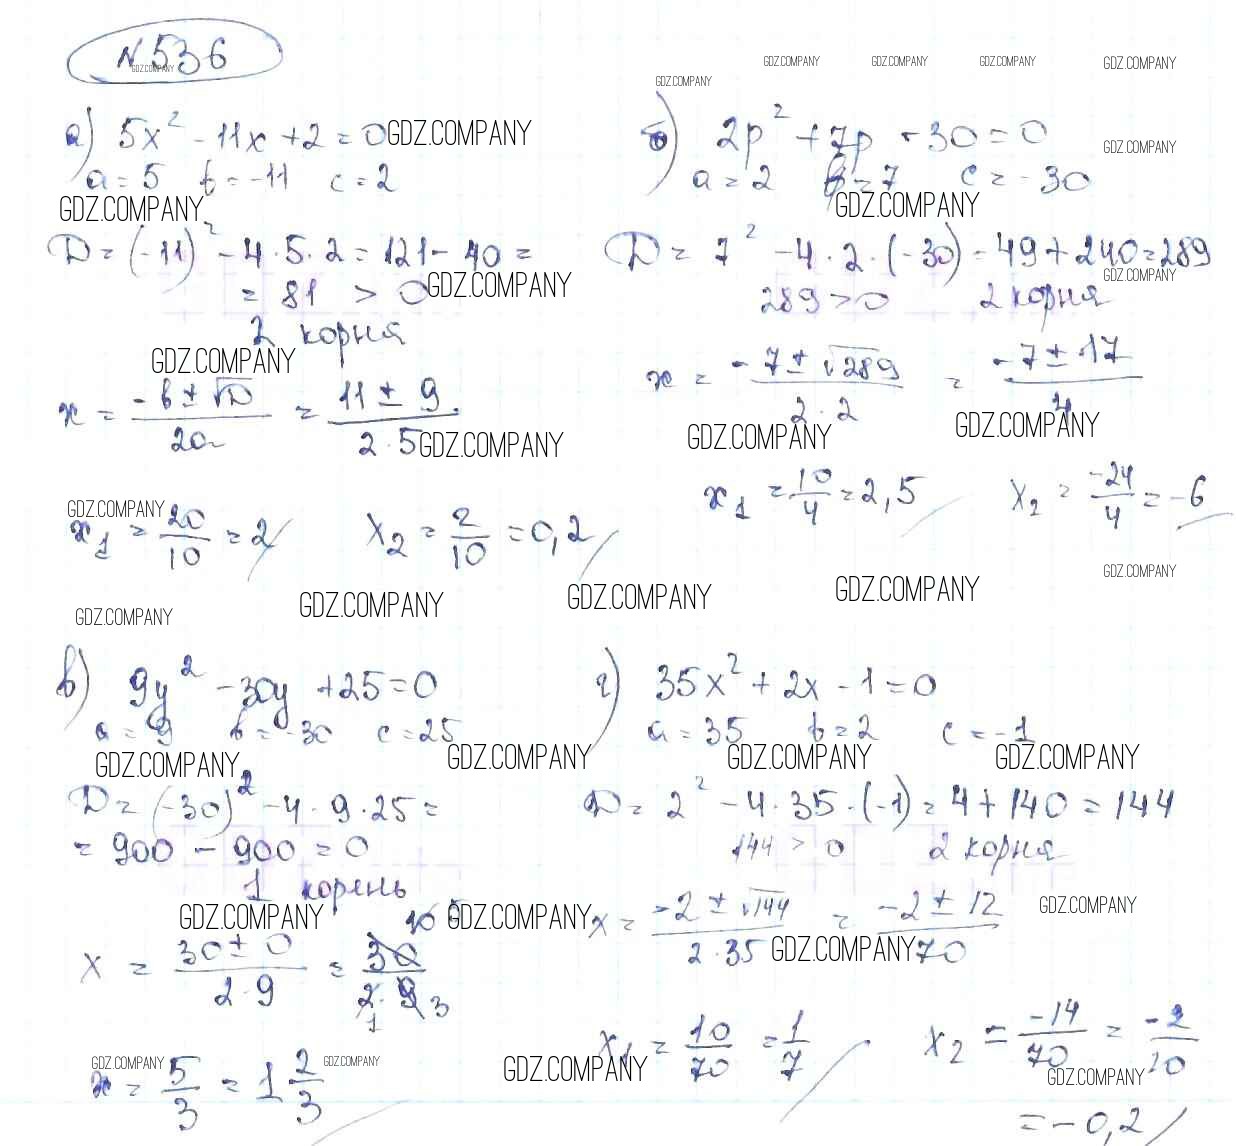 N 536
GDZ.COMPANY
GDZ.COMPANY GDZ.COMPANY GDZ.COMPANY GDZ.COMPANY
GDZ.COMPANY
а) 5x² - 11x + 2 = 0 GDZ.COMPANY
a = 5 b = -11 c = 2
GDZ.COMPANY
D = (-11)² - 4 · 5 · 2 = 121 - 40 =
= 81 > 0 GDZ.COMPANY
2 корня
GDZ.COMPANY
x = (-b ± √D)/2a = (11 ± 9)/(2 · 5) GDZ.COMPANY
GDZ.COMPANY
x₁ = 20/10 = 2 x₂ = 2/10 = 0,2
б) 2p² + 7p - 30 = 0 GDZ.COMPANY
a = 2 b = 7 c = -30
GDZ.COMPANY
D = 7² - 4 · 2 · (-30) = 49 + 240 = 289
GDZ.COMPANY
289 > 0 2 корня
x = (-7 ± √289)/(2 · 2) = (-7 ± 17)/4
GDZ.COMPANY GDZ.COMPANY
x₁ = 10/4 = 2,5 x₂ = -24/4 = -6
GDZ.COMPANY
GDZ.COMPANY GDZ.COMPANY GDZ.COMPANY GDZ.COMPANY
в) 9y² - 30y + 25 = 0
a = 9 b = -30 c = 25
GDZ.COMPANY GDZ.COMPANY
D = (-30)² - 4 · 9 · 25 =
= 900 - 900 = 0
1 корень
GDZ.COMPANY GDZ.COMPANY
x = (30 ± 0)/(2 · 9) = 30/(2 · 9)
10 5
1 3
GDZ.COMPANY GDZ.COMPANY
x = 5/3 = 1 2/3
г) 35x² + 2x - 1 = 0
a = 35 b = 2 c = -1
GDZ.COMPANY GDZ.COMPANY
D = 2² - 4 · 35 · (-1) = 4 + 140 = 144
144 > 0 2 корня
GDZ.COMPANY
x = (-2 ± √144)/(2 · 35) = (-2 ± 12)/70
GDZ.COMPANY
x₁ = 10/70 = 1/7 x₂ = -14/70 = -2/10
GDZ.COMPANY GDZ.COMPANY
= -0,2